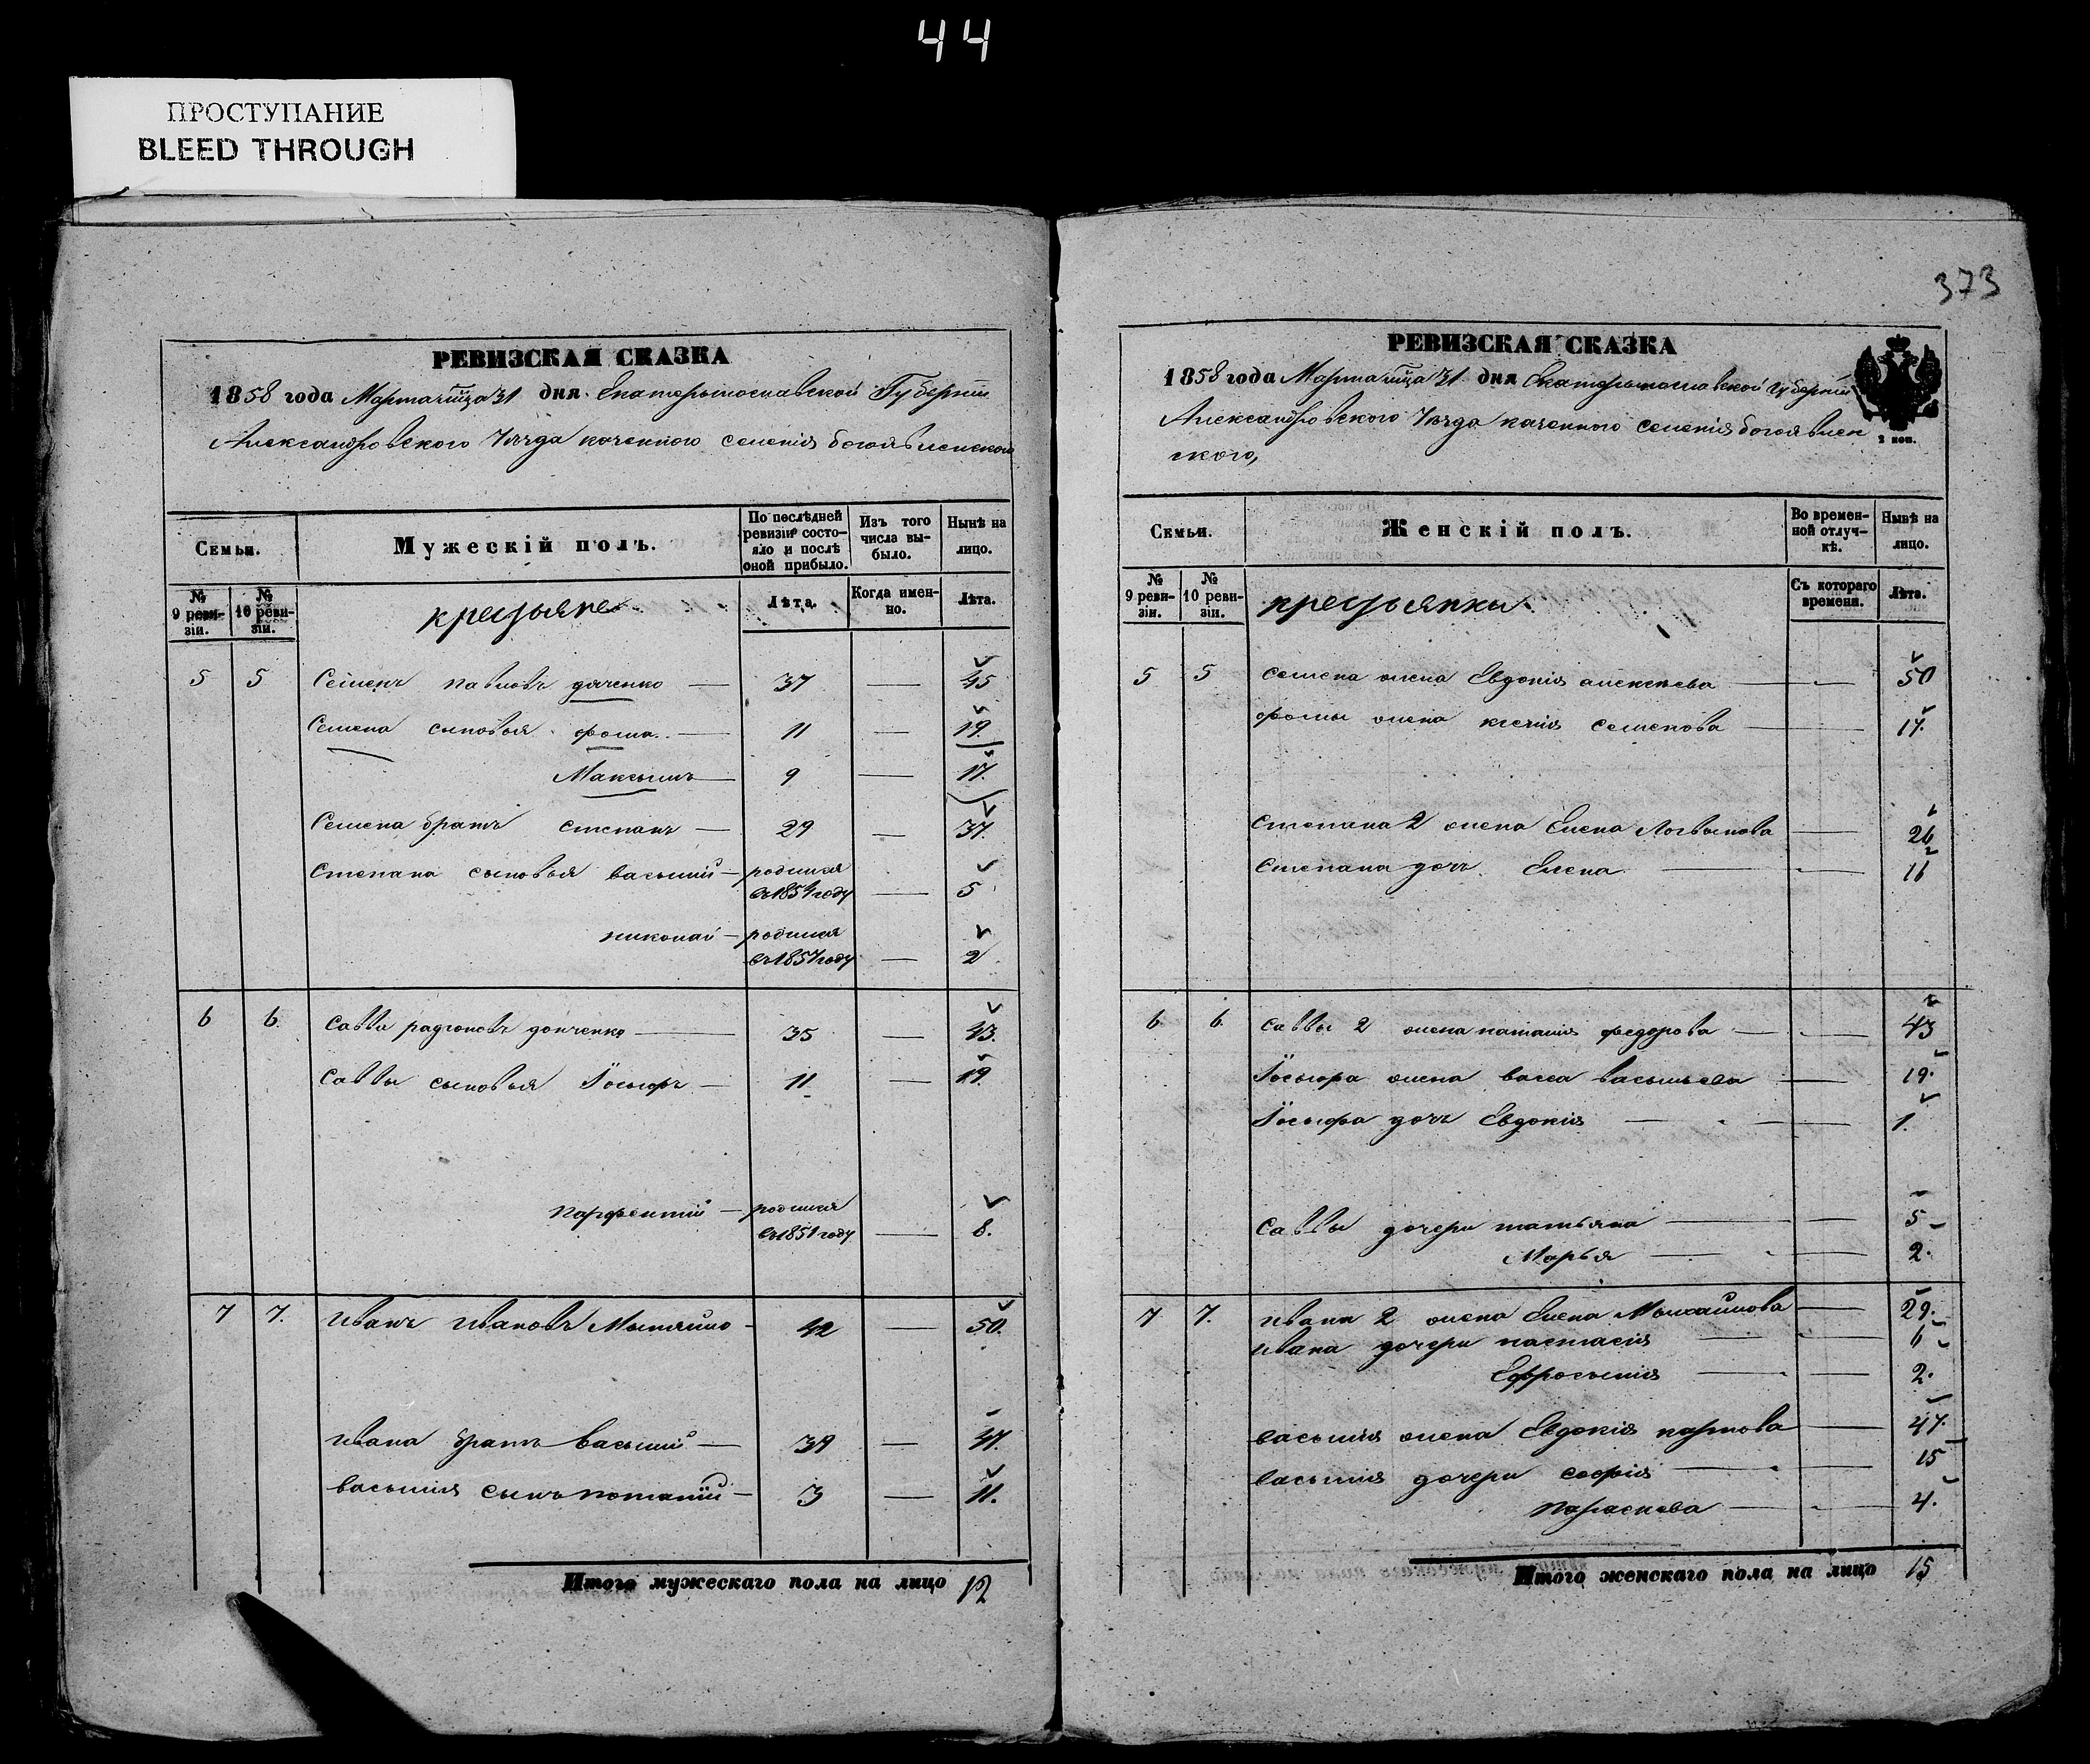 44
ПРОСТУПАНИЕ
BLEED THROUGH
РЕВИЗСКАЯ СКАЗКА
1858 года Марта мца 31 дня Екатеринославской Губерніи
Александровского Уѣзда казенного селенія богоявленского
Семьи.
Мужескій полъ.
По послѣдней ревизіи состояло и послѣ оной прибыло.
Изъ того числа выбыло.
Нынѣ на лицо.
№ 9 ревизіи.
№ 10 ревизіи.
крестьяне
Лѣта.
Когда именно.
Лѣта.
5 5 Семенъ павловъ дяченко — 37 — 45
Семена сыновья фома — 11 — 19.
Максымъ — 9 — 17.
Семена братъ степанъ — 29 — 37.
Степана сыновья васылий — родился
въ 1854 году — 5
николай — родился
въ 1857 году — 2
6 6. Савва радионовъ донченко — 35 — 43.
Саввы сыновья Іосыфъ — 11 — 19.
парфентий — родился
въ 1851 году — 8.
7 7. Иванъ Ивановъ — 42 — 50.
Ивана братъ васылий — 39 — 47.
васылия сынъ потапий — 3 — 11.
Итого мужескаго пола на лицо 12
373
РЕВИЗСКАЯ СКАЗКА
1858 года Марта мца 31 дня Екатеринославской губерніи
Александровского Уѣзда казенного селенія богоявлен
ского,
2 коп.
Семьи.
Женскій полъ.
Во временной отлучкѣ.
Нынѣ на лицо.
№ 9 ревизіи.
№ 10 ревизіи.
крестьянки.
Съ котораго времени.
Лѣта.
5 5 Семена жена Евдокия алексѣева — 50
фомы жена ксения семенова — 17.
Степана 2 жена Елена Логвынова — 26
Степана дочь Елена — 11
6. 6. Саввы 2 жена наталия федорова — 43
Іосыфа жена васса васыльева — 19.
Іосыфа дочь Евдокия — 1.
Саввы дочери татьяна — 5
Марья — 2.
7 7. Ивана 2 жена Елена Мыхайлова — 29.
Ивана дочери настасия — 6
Ефросыния — 2.
васылия жена Евдокия карпова — 47.
васылия дочери софия — 15
параскева — 4.
Итого женскаго пола на лицо 15